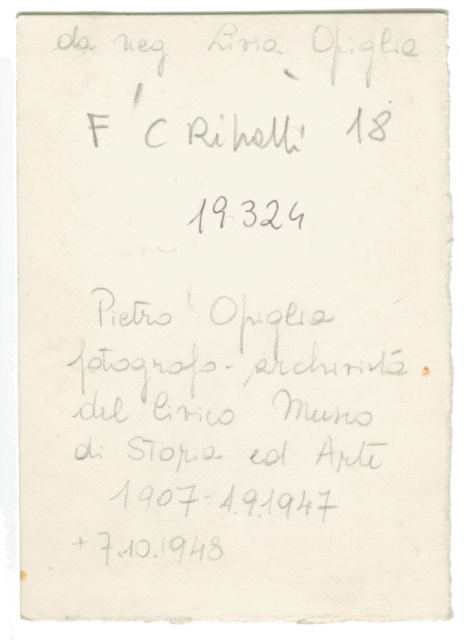 da neg Lissa Opiglia
F C Ribalti 18
19324
Pietro Opiglia
fotografo - archivista
del Civico Museo
di Storia ed Arte
1907-1.9.1947
+7.10.1948